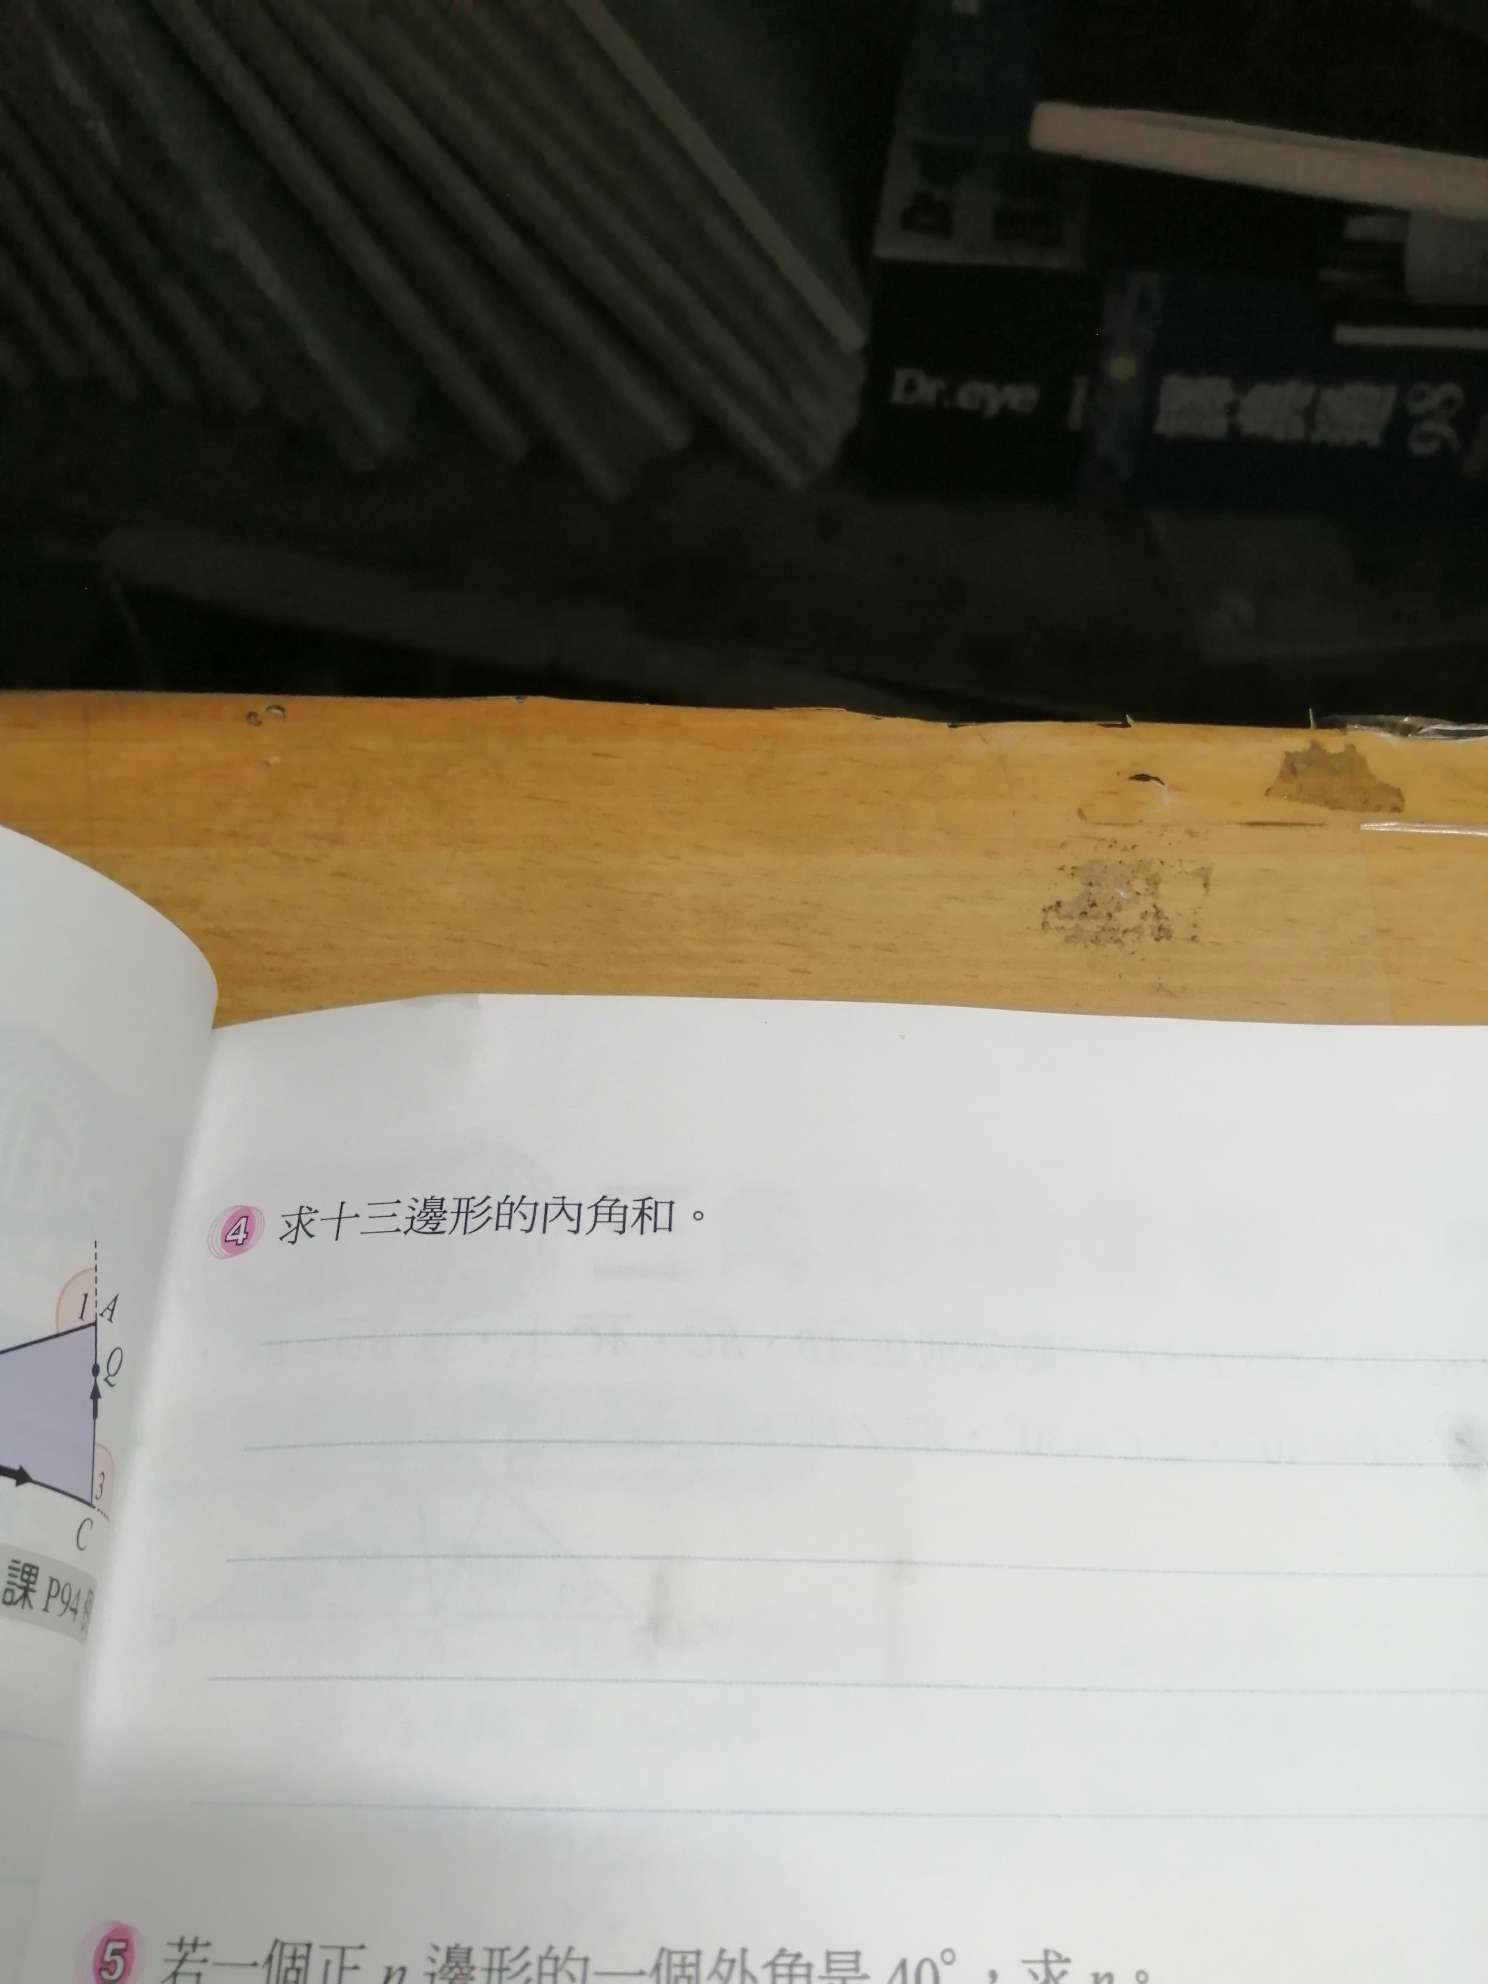 Dr.eye
98
4 求十三邊形的內角和。
1 A
Q
3
C
課 P94
5 若一個正 n 邊形的一個外角是 40°，求 n。